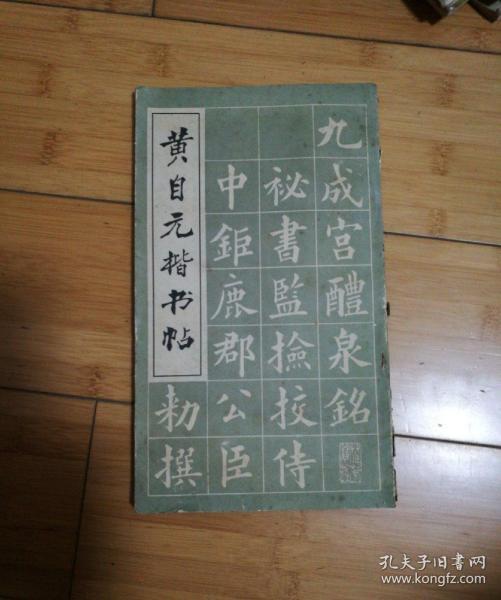 黄自元楷书帖
九成宫醴泉銘
祕書監撿挍侍
中鉅鹿郡公臣
勅撰
孔夫子旧书网
www.kongfz.com